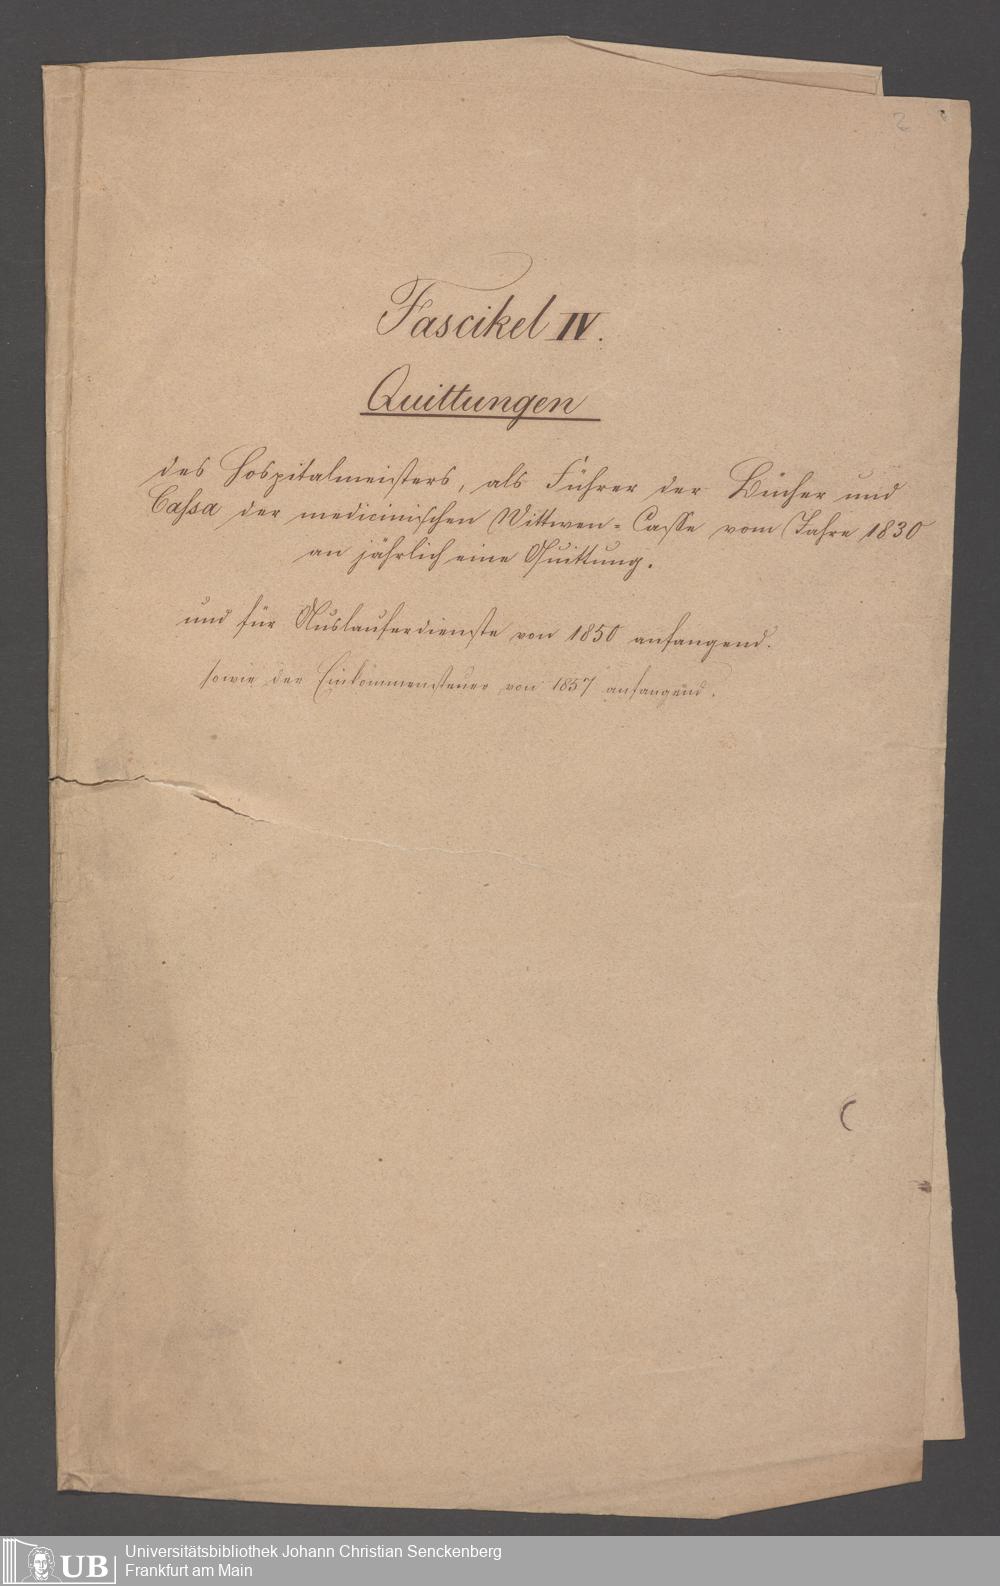 2
Fascikel IV.
Quittungen
des Hospitalmeisters, als Führer der Bücher und
Cassa der medicinischen Wittwen-Casse vom Jahre 1830
an jährlich eine Quittung.
und für Auslauferdienste von 1850 anfangend.
sowie der Einkommensteuer von 1857 anfangend.
UB
Universitätsbibliothek Johann Christian Senckenberg
Frankfurt am Main